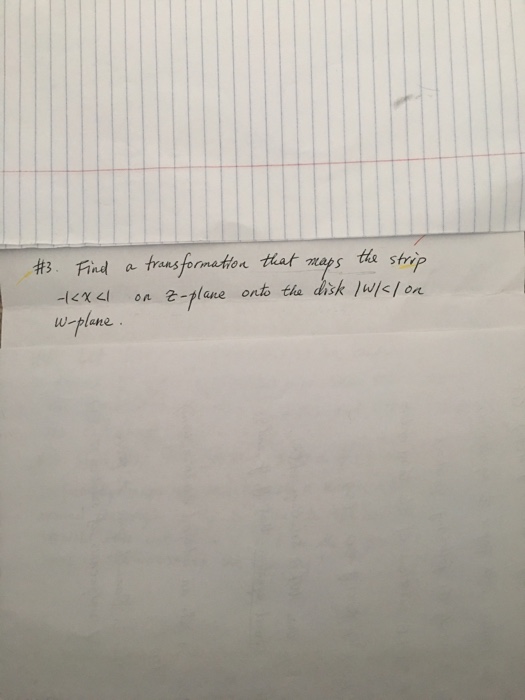 #3. Find a transformation that maps the strip
-1<x<1 on z-plane onto the disk |w|<1 on
w-plane.